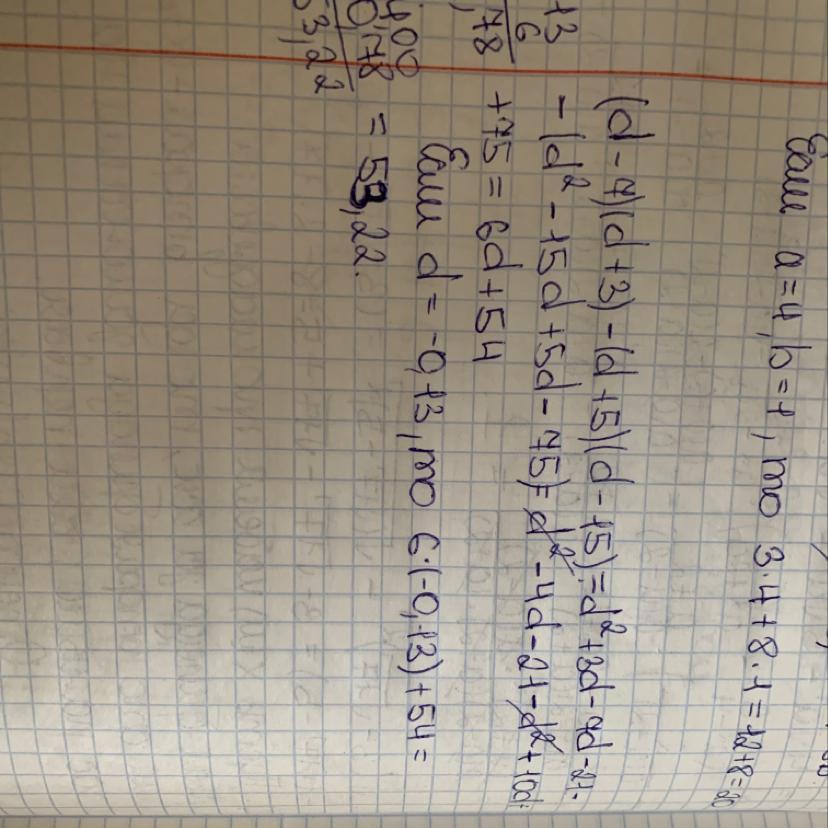 Если a=4, b=1, то 3·4+8·1=12+8=20
(d-7)(d+3)-(d+5)(d-15)=d²+3d-7d-21-
-(d²-15d+5d-75)=d²-4d-21-d²+10d+
+75=6d+54
Если d=-0,13, то 6·(-0,13)+54=
=53,22.
13
6
78
400
0,78
53,22